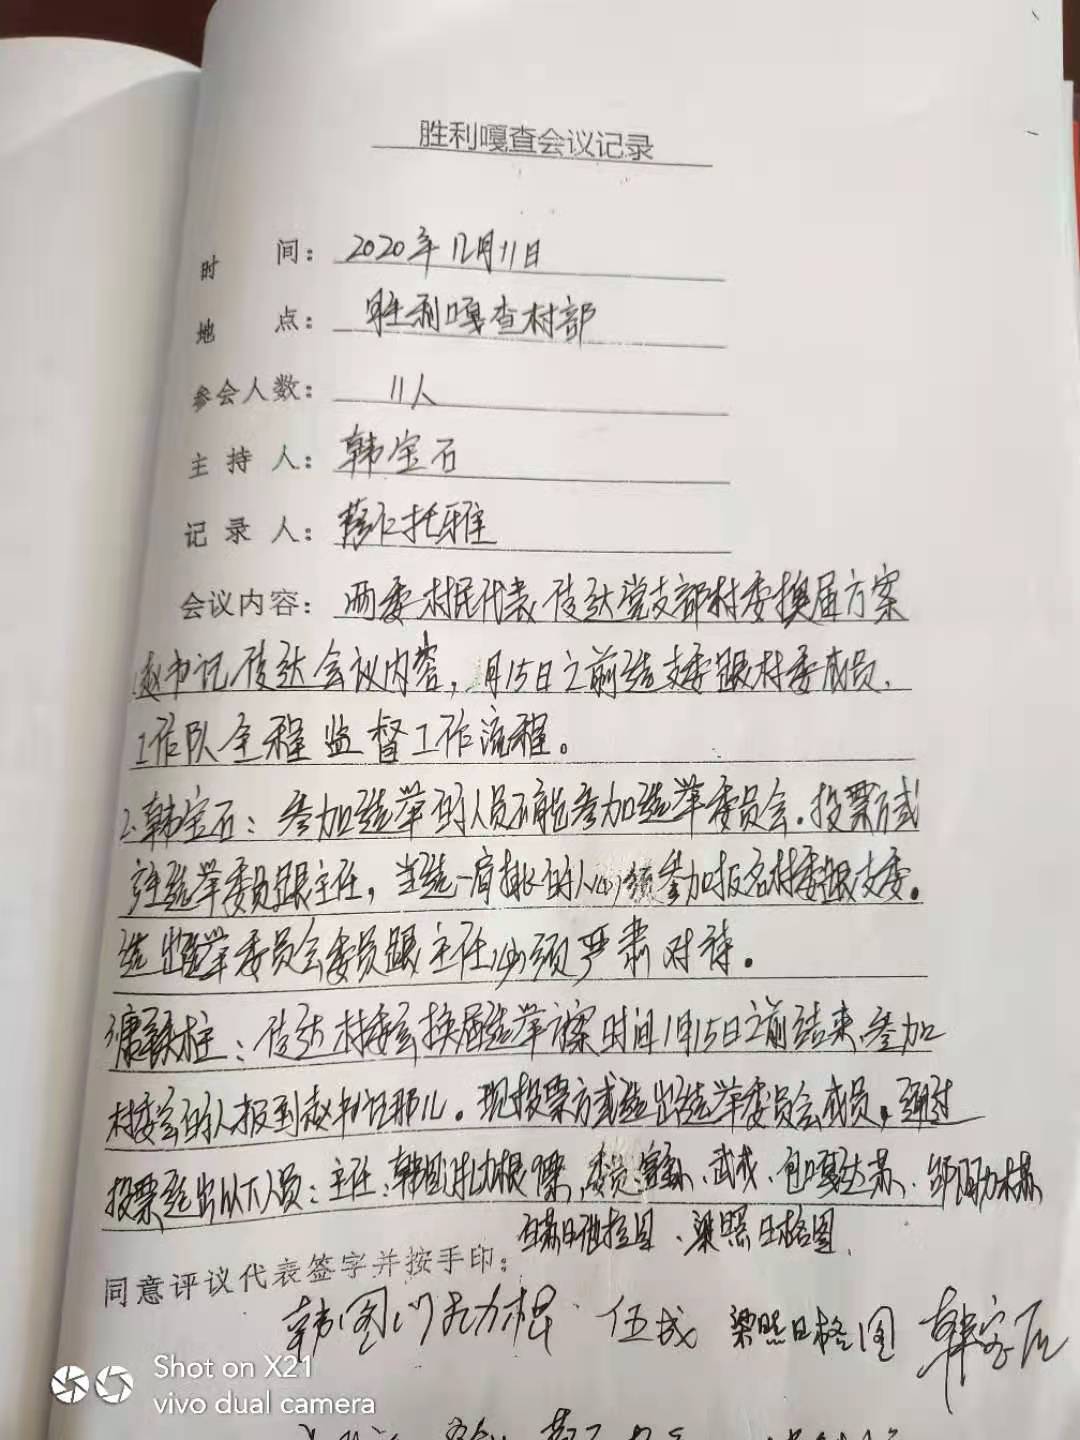 胜利嘎查会议记录
时 间：2020年12月11日
地 点：胜利嘎查村部
参会人数：11人
主 持 人：韩宝石
记 录 人：托雅
会议内容：两委村民代表传达党支部村委换届方案
1.赵书记传达会议内容，月15日之前选支委跟村委成员，
工作队全程监督工作流程。
2.韩宝石：参加选举的人员不能参加选举委员会。投票方式
选举委员跟主任，当选一肩挑的人必须参加报名村委跟支委。
选出选举委员会委员跟主任必须严肃对待。
3.铁柱：传达村委会换届选举方案时间1月15日之前结束，参加
村委会的人报到赵书记那儿。现投票方式选出选举委员会成员，通过
投票选出以下人员：主任：韩图门扎力根，委员：武成、包嘎达苏、
白斯日古拉图、梁照日格图
同意评议代表签字并按手印：
韩图门扎力根 伍成 梁照日格图 韩宝石
Shot on X21
vivo dual camera